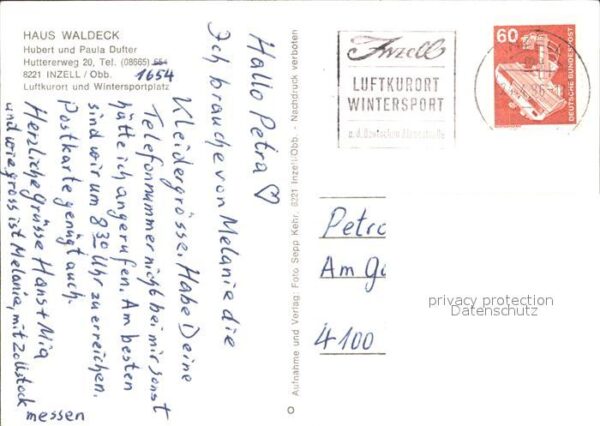 HAUS WALDECK
Hubert und Paula Dufter
Huttererweg 20, Tel. (08665) 654
1654
8221 INZELL / Obb.
Luftkurort und Wintersportplatz
Hallo Petra ♡
Ich brauche von Melanie die
Kleidergrösse. Habe Deine
Telefonnummer nicht bei mir sonst
hätte ich angerufen. Am besten
sind wir um 8 30 Uhr zu erreichen.
Postkarte genügt auch.
Herzliche Grüsse Hans + Mia
und wie gross ist Melanie, mit Zollstock
messen
Aufnahme und Verlag: Foto Sepp Kehr, 8221 Inzell-Obb. - Nachdruck verboten
Inzell
LUFTKURORT
WINTERSPORT
a.d. Deutschen Alpenstraße
60
DEUTSCHE BUNDESPOST
Petra
Am
4100
privacy protection
Datenschutz